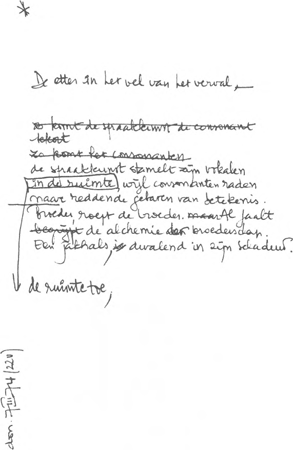 *
De otter in het vel van het verval,
zo komt de spraakkunst de consonant
tekort
zo komt het consonanten
de spraakkunst stamelt zijn vokalen
in de ruimte, wijl consonanten raden
naar reddende gebaren van betekenis.
broeder roept de broeder. Al faalt
de alchemie der broederschap.
Een jakhals, is dwalend in zijn schaduw.
de ruimte toe,